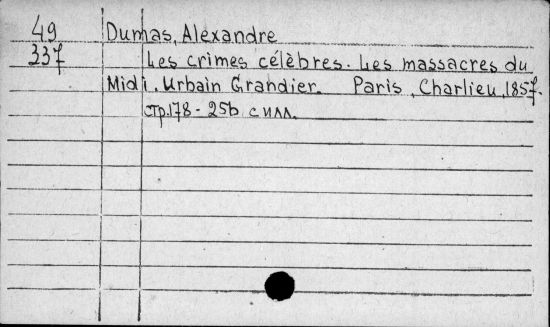 49 Dumas, Alexandre
337 Les crimes célèbres. Les massacres du
Midi. Urbain Grandier. Paris, Charlieu, 1857.
стр.178-256 с илл.